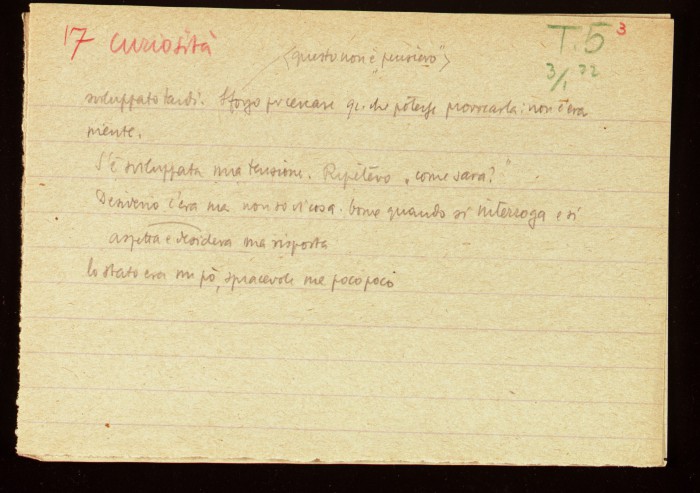 17 curiosità
T.5 3
3/1 32
<questo non è pensiero">
sviluppato tardi. Sforzo per cercare qc. che potesse provocarla: non c'era
niente.
S'è sviluppata una tensione. Ripetevo „come sarà?"
Desiderio c'era ma non so di cosa. Come quando si interroga e si
aspetta e desidera una risposta
lo stato era un pò, spiacevole ma poco poco